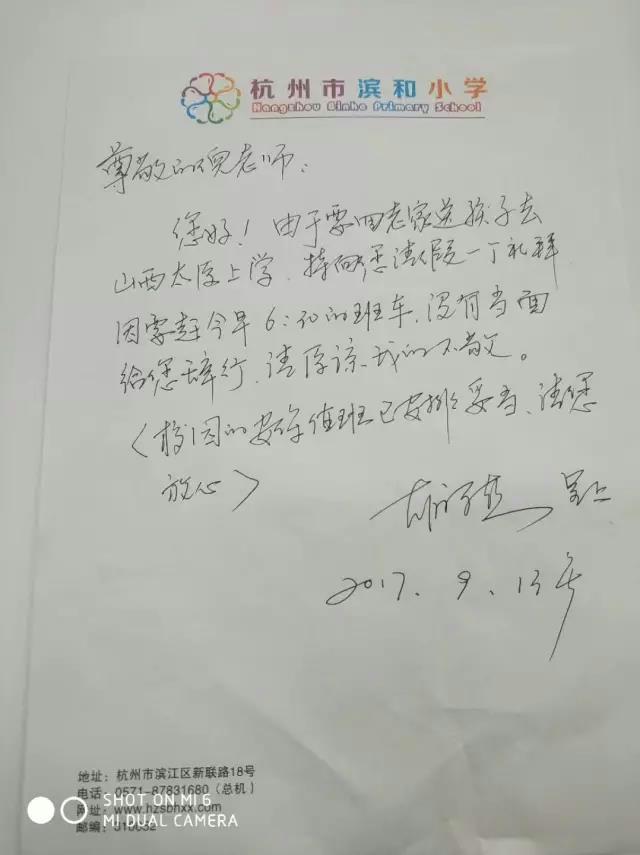 杭州市滨和小学
Hangzhou Binhe Primary School
尊敬的倪老师：
您好！由于要回老家送孩子去
山西太原上学，特向您请假一丁礼拜
因需赶今早6:20的班车，没有当面
给您辞行，请原谅我的不敬。
（校园的安保值班已安排妥当，请您
放心）
呈上
2017.9.13
地址：杭州市滨江区新联路18号
电话：0571-87831680（总机）
网址：www.hzsbhxx.com
邮编：310052
SHOT ON MI 6
MI DUAL CAMERA